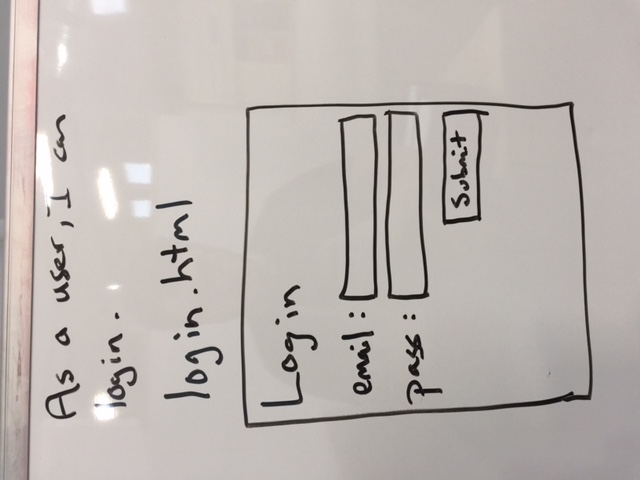 As a user, I can
login.
login.html
Login
email:
pass:
Submit